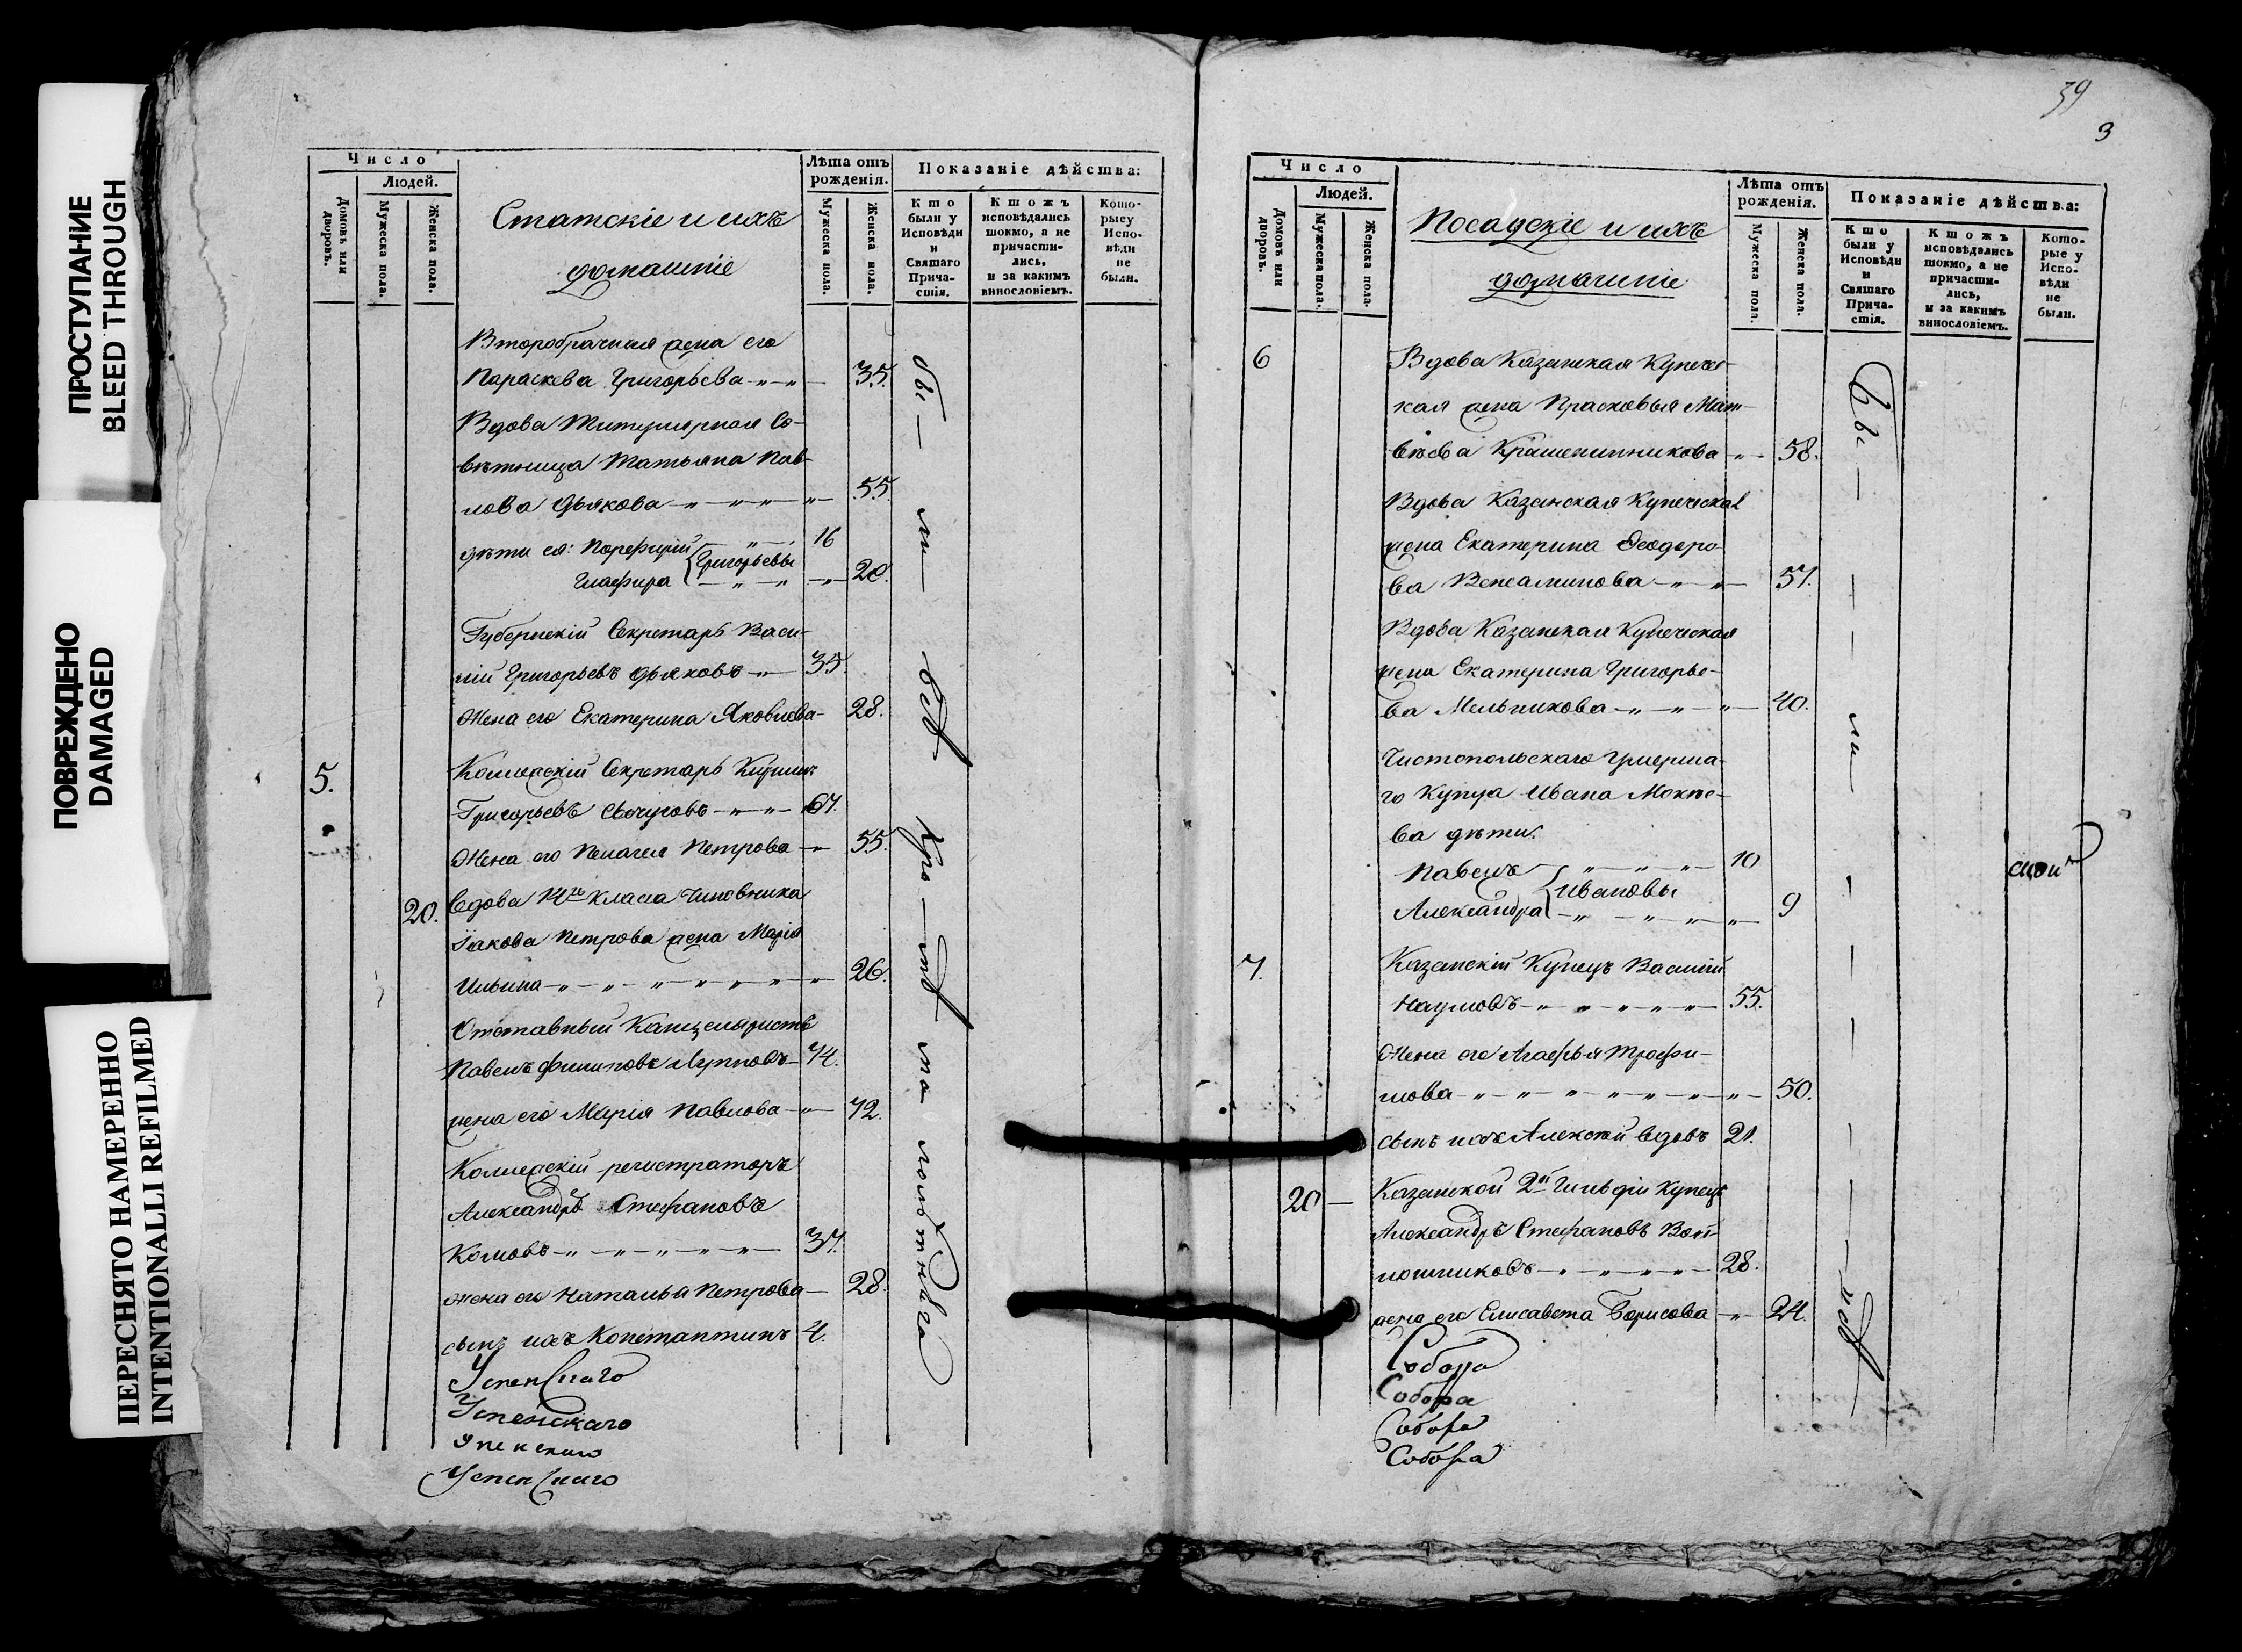 ПРОСТУПАНИЕ
BLEED THROUGH
ПОВРЕЖДЕНО
DAMAGED
ПЕРЕСНЯТО НАМЕРЕННО
INTENTIONALLI REFILMED
Число
Людей.
Домовъ или дворовъ.
Мужеска пола.
Женска пола.
Статскіе и ихъ
домашніе
Лѣта отъ рожденія.
Мужеска пола.
Женска пола.
Показаніе дѣйства:
Кто были у Исповѣди и Святаго Причастія.
Ктожъ исповѣдались токмо, а не причастились, и за какимъ винословіемъ.
Которыеу Исповѣди не были.
Второбрачная жена его
Параскева Григорьева 35.
Вдова Титулярная Со-
вѣтница Татьяна Пав-
лова Дьякова 55
дѣти ея: Порфирій 16
Григорьевы
Глафира 20.
Губернскій Секретарь Васи-
лій Григорьевъ Дьяковъ 35.
Жена его Екатерина Яковлева 28.
5. Коллежскій Секретарь
Григорьевъ 67.
Жена его Пелагея Петрова 55.
20. Вдова 14го класса Чиновника
Іакова Петрова жена Марія
Ильина 26.
Отставный Канцеляристъ
Павелъ Филиповъ 74.
жена его Марія Павлова 72.
Коллежскій регистраторъ
Александръ Стефановъ
Комовъ 37.
жена его Наталья Петрова 28.
сынъ ихъ Константинъ 4.
бы — ли — всѣ кро — мѣ малолѣтнаго
Успенскаго
Успенскаго
Успенскаго
Успенскаго
39
3
Число
Людей.
Домовъ или дворовъ.
Мужеска пола.
Женска пола.
Посадскіе и ихъ
домашніе
Лѣта отъ рожденія.
Мужеска пола.
Женска пола.
Показаніе дѣйства:
Кто были у Исповѣди и Святаго Причастія.
Ктожъ исповѣдались токмо, а не причастились, и за какимъ винословіемъ.
Которые у Исповѣди не были.
6 Вдова Казанская Купечес-
кая жена Прасковья Мат-
вѣева Крашенинникова 58.
Вдова Казанская Купеческая
жена Екатерина Ѳеодоро-
ва Веніаминова 57.
Вдова Казанская Купеческая
жена Екатерина Григорье-
ва Мельникова 40.
Чистопольскаго умерша-
го Купца Ивана
ва дѣти.
Павелъ 10
Ивановы
Александра 9
7. Казанскій Купецъ Василій
Наумовъ 55.
Жена его Агафья Трофи-
мова 50.
сынъ ихъ Алексѣй вдовъ 21.
20 Казанской 2й Гильдіи Купецъ
Александръ Стефановъ
28.
жена его Елисавета Борисова 24.
Бы — ли — всѣ
Собора
Собора
Собора
Собора